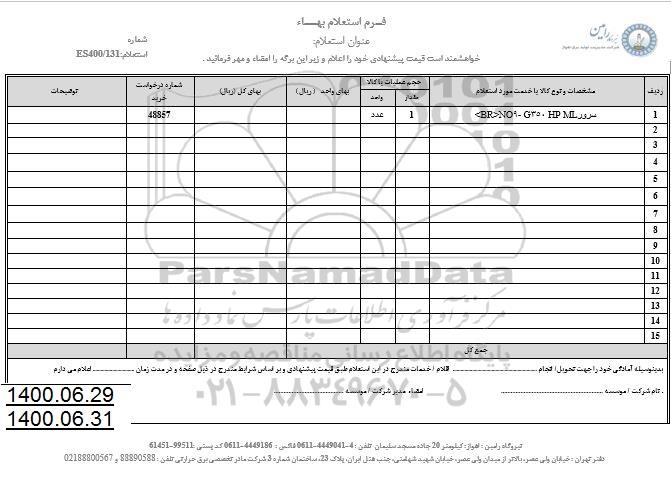 فـرم استعلام بهـــاء
عنوان استعلام:
شماره استعلام:ES400/131
خواهشمند است قیمت پیشنهادی خود را اعلام و زیر این برگه را امضاء و مهر فرمائید .
ردیف مشخصات و نوع کالا یا خدمت مورد استعلام حجم عملیات یا کالا بهای واحد (ریال) بهای کل (ریال) شماره درخواست خرید توضیحات
مقدار واحد
1 سرور NO۹- G۳۵۰ HP ML<BR> 1 عدد 48857
2
3
4
5
6
7
8
9
10
11
12
13
14
15
جمع کل
بدینوسیله آمادگی خود را جهت تحویل/ انجام ........ اقلام / خدمات مندرج در این استعلام طبق قیمت پیشنهادی و بر اساس شرایط مندرج در ذیل صفحه و در مدت زمان ........ اعلام می دارم
. نام شرکت / موسسه ........ امضاء مدیر شرکت / موسسه ........
1400.06.29
1400.06.31
نیروگاه رامین : اهواز: کیلومتر 20 جاده مسجد سلیمان تلفن : 4-4449041-0611 فاکس : 4449186-0611 کد پستی :99511-61451
دفتر تهران : خیابان ولی عصر، بالاتر از میدان ولی عصر، خیابان شهید شهامتی، جنب هتل ایران، پلاک 23، ساختمان شماره 3 شرکت مادر تخصصی برق حرارتی تلفن : 88890588 و 02188800567
ParsNamadData
مرکز فرآوری اطلاعات پارس نماد داده ها
پایگاه اطلاع رسانی مناقصه و مزایده
۰۲۱-۸۸۳۴۹۶۷۰-۵